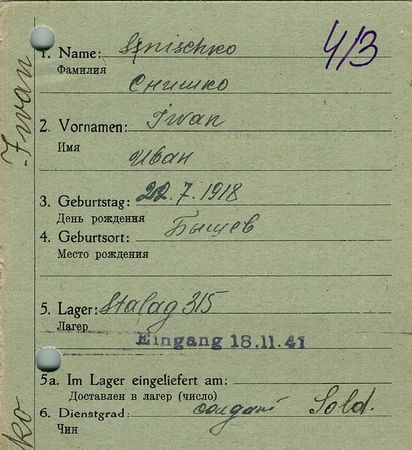 4/3
1. Name: Snischko
Фамилия
Снишко
2. Vornamen: Iwan
Имя
Иван
3. Geburtstag: 22.7.1918
День рождения
4. Geburtsort: Бышев
Место рождения
5. Lager: Stalag 315
Лагерь
Eingang 18.11.41
5a. Im Lager eingeliefert am:
Доставлен в лагерь (число)
6. Dienstgrad: солдат Sold.
Чин
Iwan
ko